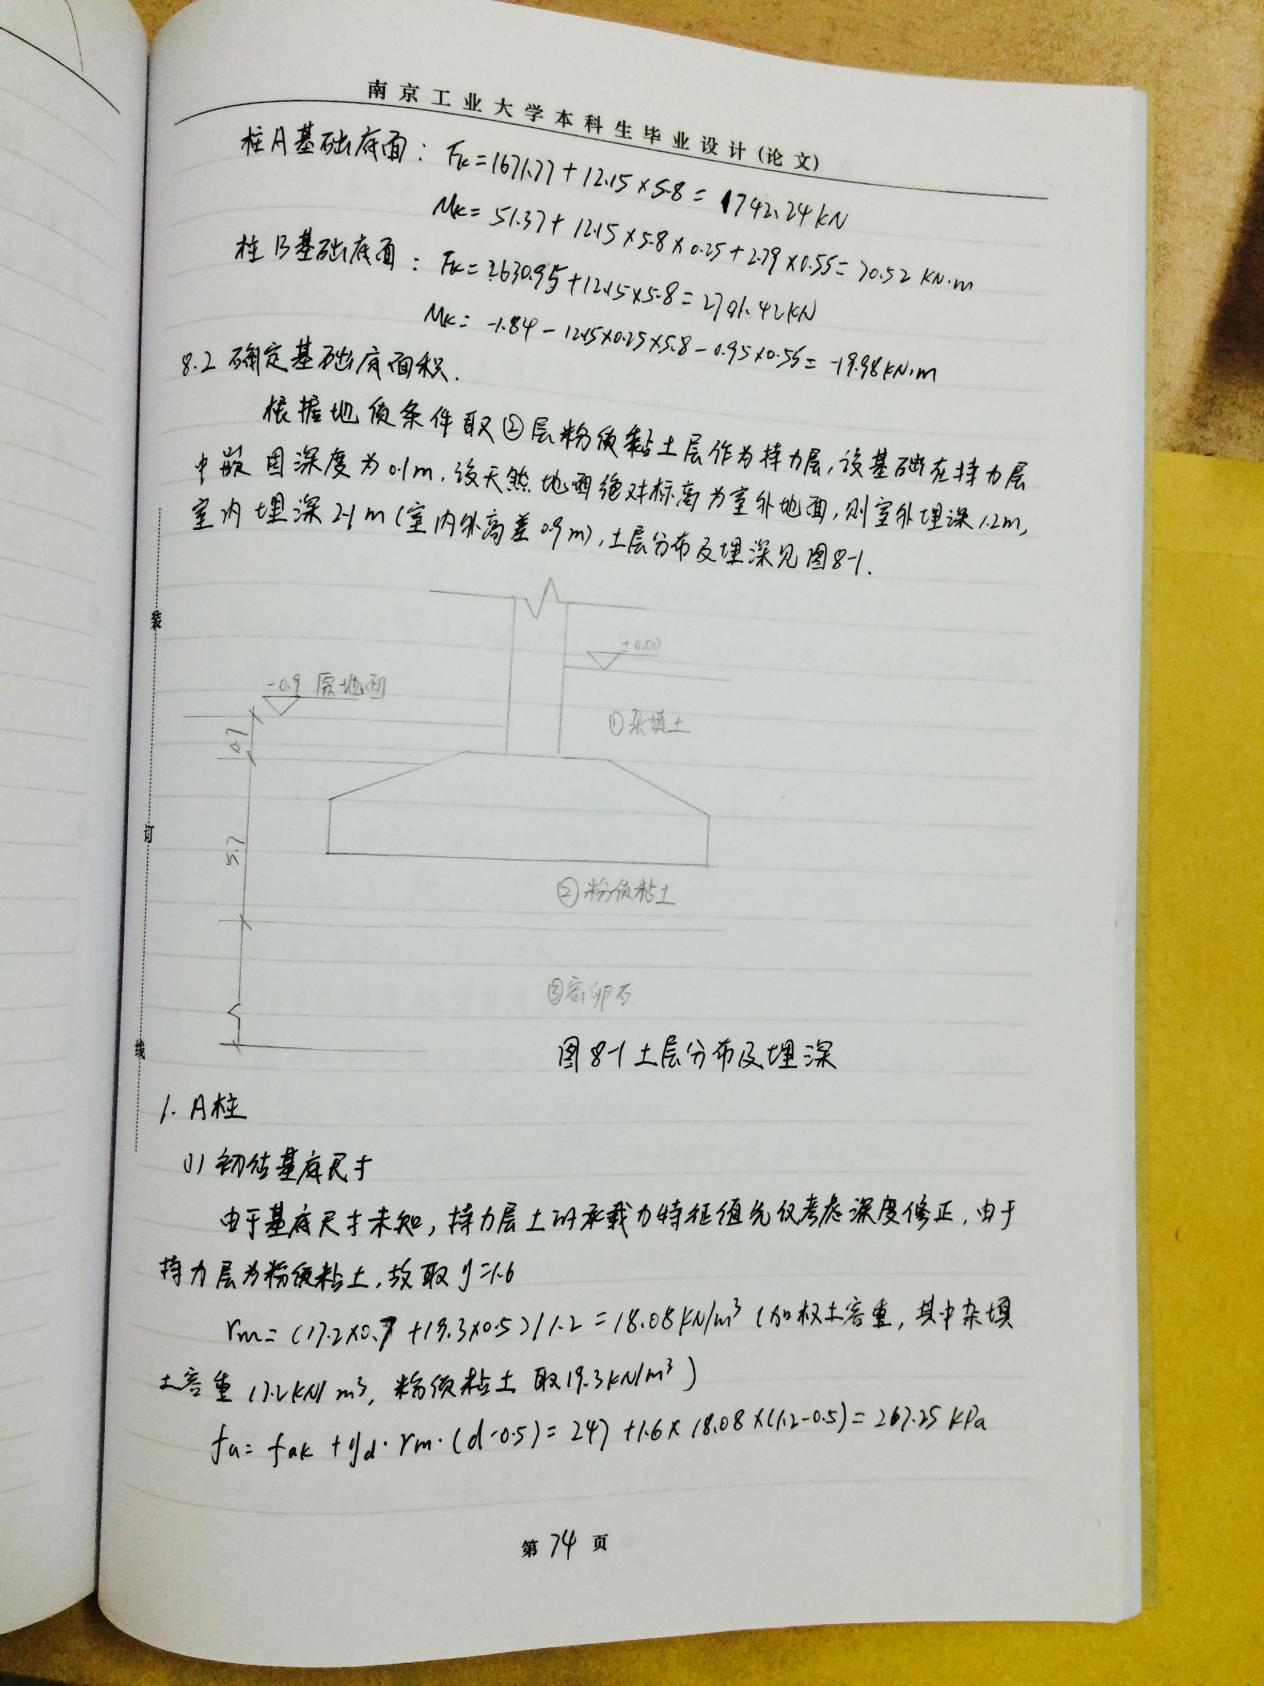 南京工业大学本科生毕业设计(论文)
柱A基础底面: Fk=1671.77+12.15×5.8=1742.24kN
Mk=51.37+12.15×5.8×0.25+2.79×0.55=70.52KN·m
柱B基础底面: Fk=2630.95+12.15×5.8=2701.42kN
Mk=-1.84-12.15×0.25×5.8-0.95×0.55=-19.98kN·m
8.2 确定基础底面积.
根据地质条件取②层粉质黏土层作为持力层,设基础在持力层
中嵌固深度为0.1m,设天然地面绝对标高为室外地面,则室外埋深1.2m,
室内埋深2.1m(室内外高差0.9m),土层分布及埋深见图8-1.
±0.00
-0.9 原地面
①杂填土
0.7
5.7
②粉质粘土
③密卵石
图8-1土层分布及埋深
1. A柱
(1) 初估基底尺寸
由于基底尺寸未知,持力层土的承载力特征值先仅考虑深度修正,由于
持力层为粉质粘土,故取η=1.6
rm=(17.2×0.7+19.3×0.5)/1.2=18.08KN/m³(加权土容重,其中杂填
土容重17.2KN/m³,粉质粘土取19.3KN/m³)
fa=fak+ηd·rm·(d-0.5)=247+1.6×18.08×(1.2-0.5)=267.25KPa
第74页
装
订
线